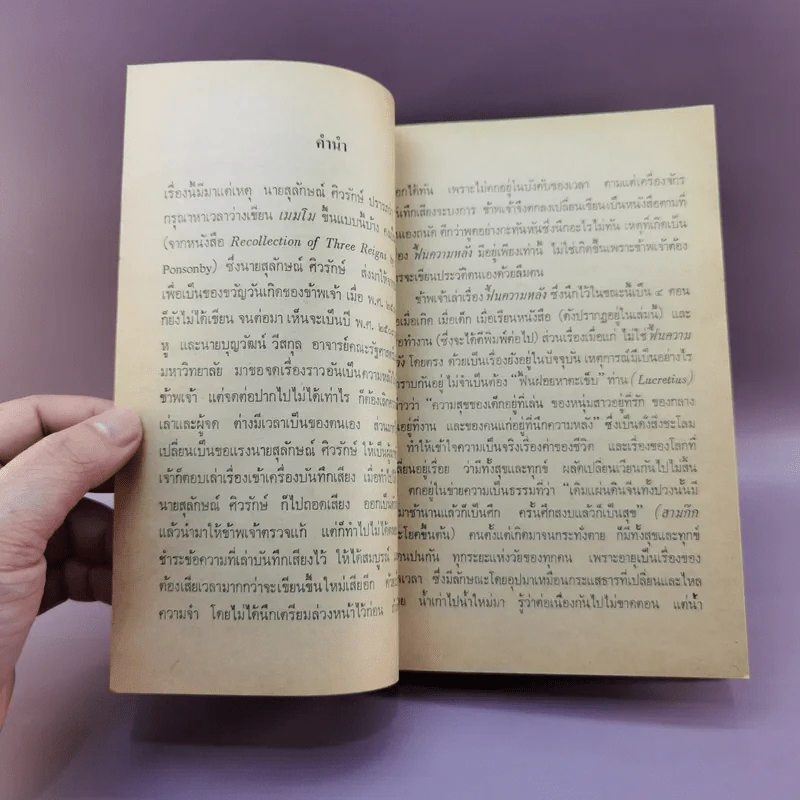 คำนำ
เรื่องนี้มีมาแต่เหตุ นายสุลักษณ์ ศิวรักษ์
กรุณาหาเวลาว่างเขียน เมมโม ขึ้นแบบนี้บ้าง
(จากหนังสือ Recollection of Three Reigns
Ponsonby) ซึ่งนายสุลักษณ์ ศิวรักษ์ ส่งมาให้
เพื่อเป็นของขวัญวันเกิดของข้าพเจ้า เมื่อ พ.ศ.
ก็ยังไม่ได้เขียน จนต่อมา เห็นจะเป็นปี พ.ศ.
หู และนายบุญวัฒน์ วีสกุล อาจารย์คณะรัฐศาสตร์
มหาวิทยาลัย มาขอจดเรื่องราวอันเป็นความหลัง
ข้าพเจ้า แต่จดต่อปากไปไม่ได้เท่าไร ก็ต้องเลิก
เล่าและผู้จด ต่างมีเวลาเป็นของตนเอง
เปลี่ยนเป็นขอแรงนายสุลักษณ์ ศิวรักษ์ ให้เป็น
เจ้าก็ตอบเล่าเรื่องเข้าเครื่องบันทึกเสียง
นายสุลักษณ์ ศิวรักษ์ ก็ไปถอดเสียง ออกเป็น
แล้วนำมาให้ข้าพเจ้าตรวจแก้ แต่ก็ทำไปไม่ได้
ชำระข้อความที่เล่าบันทึกเสียงไว้ ให้ได้สมบูรณ์
ต้องเสียเวลามากกว่าจะเขียนขึ้นใหม่เสียอีก
ความจำ โดยไม่ได้นึกเตรียมล่วงหน้าไว้ก่อน
เพราะไม่ตกอยู่ในบังคับของเวลา ตามแต่เครื่องจักร
ข้าพเจ้าจึงตกลงเปลี่ยนเขียนเป็นหนังสือตามที่
ดีกว่าพูดอย่างกะทันหันซึ่งนึกอะไรไม่ทัน เหตุที่เกิดเป็น
ฟื้นความหลัง มีอยู่เพียงเท่านี้ ไม่ใช่เกิดขึ้นเพราะข้าพเจ้าต้อง
จะเขียนประวัติตนเองด้วยลืมตน
ข้าพเจ้าเล่าเรื่อง ฟื้นความหลัง ซึ่งนึกไว้ในขณะนี้เป็น ๔ ตอน
เมื่อเกิด เมื่อเด็ก เมื่อเรียนหนังสือ (ดังปรากฏอยู่ในเล่มนี้) และ
ทำงาน (ซึ่งจะได้ตีพิมพ์ต่อไป) ส่วนเรื่องเมื่อแก่ ไม่ใช่ ฟื้นความ
โดยตรง ด้วยเป็นเรื่องยังอยู่ในปัจจุบัน เหตุการณ์มีเป็นอย่างไร
ทราบกันอยู่ ไม่จำเป็นต้อง “ฟื้นฝอยหาตะเข็บ” ท่าน (Lucretius)
“ความสุขของเด็กอยู่ที่เล่น ของหนุ่มสาวอยู่ที่รัก ของกลาง
อยู่ที่งาน และของคนแก่อยู่ที่นึกความหลัง” ซึ่งเป็นดั่งสิ่งชะโลม
ทำให้เข้าใจความเป็นจริงเรื่องค่าของชีวิต และเรื่องของโลกที่
อยู่เรื่อย ว่ามีทั้งสุขและทุกข์ ผลัดเปลี่ยนเวียนกันไปไม่สิ้น
ตกอยู่ในข่ายความเป็นธรรมที่ว่า “เดิมแผ่นดินจีนทั้งปวงนั้นมี
มาช้านานแล้วก็เป็นศึก ครั้นศึกสงบแล้วก็เป็นสุข” (สามก๊ก
คนตั้งแต่เกิดมาจนกระทั่งตาย ก็มีทั้งสุขและทุกข์
ปนกัน ทุกระยะแห่งวัยของทุกคน เพราะอายุเป็นเรื่องของ
เวลา ซึ่งมีลักษณะโดยอุปมาเหมือนกระแสธารที่เปลี่ยนและไหล
น้ำเก่าไปน้ำใหม่มา รู้ว่าต่อเนื่องกันไปไม่ขาดตอน แต่น้ำ